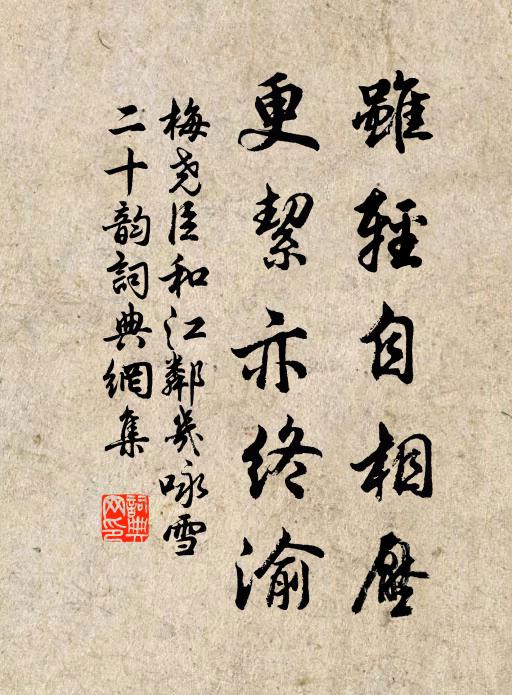 雖輕自相壓
更絜亦終渝
梅堯臣和江鄰幾咏雪
二十韵詞典網集
詞典网印